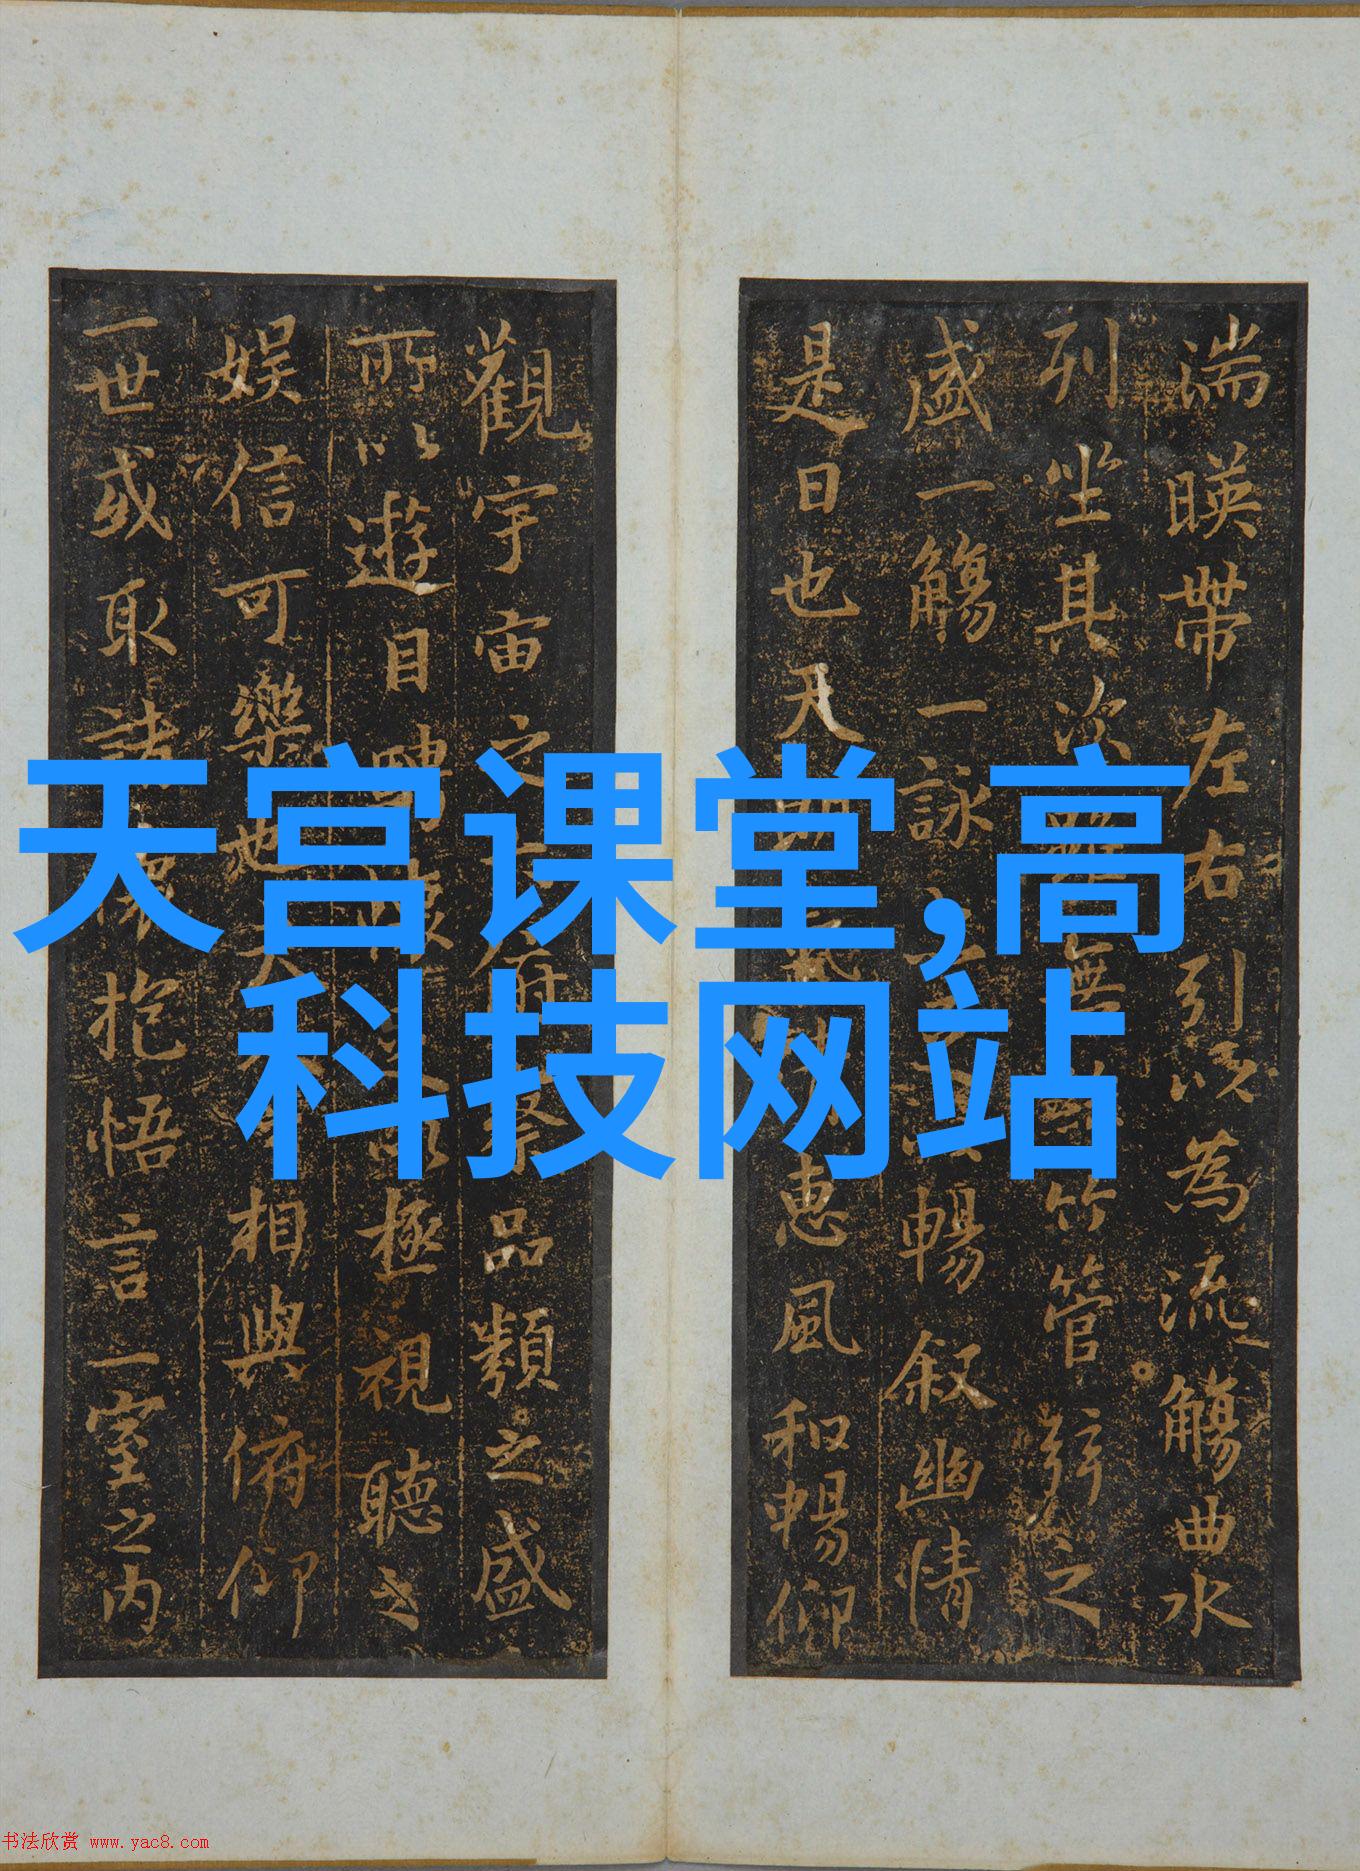 天宫课堂,高
科技网站
湍暎帶左右引以為流觴曲水
列坐其次無竹管弦之
盛一觴一詠暢叙幽情
是日也天惠風和暢仰
觀宇宙之察品類之盛
所以遊目騁懷極視聽之
娱信可樂也夫相與俯仰
一世或取諸懷抱悟言一室之内
书法欣赏 www.yac8.com